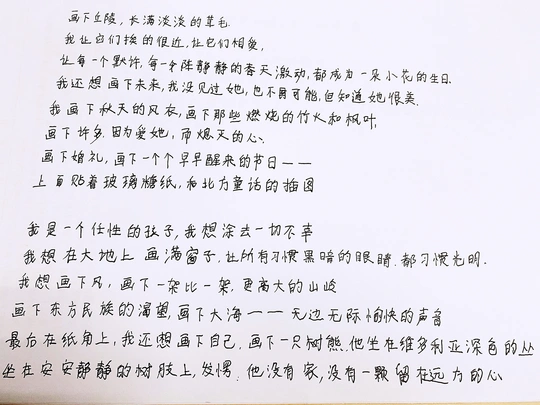 画下丘陵，长满淡淡的茸毛.
我让它们挨的很近，让它们相爱，
让每一个默许，每一个阵静静的春天激动，都成为一朵小花的生日.
我还想画下未来，我没见过她，也不可能，但知道她很美.
我画下秋天的风衣，画下那些燃烧的竹火和枫叶，
画下许多因为爱她，而熄灭的心.
画下婚礼，画下一个个早早醒来的节日——
上面贴着玻璃糖纸，和北方童话的插图
我是一个任性的孩子，我想涂去一切不幸
我想在大地上 画满窗子，让所有习惯黑暗的眼睛，都习惯光明.
我想画下风，画下一架比一架更高大的山岐
画下东方民族的渴望，画下大海——无边无际愉快的声音
最后在纸角上，我还想画下自己，画下一只树熊，他坐在维多利亚深色的丛
坐在安安静静的树肢上，发愣，他没有家，没有一颗留在远方的心